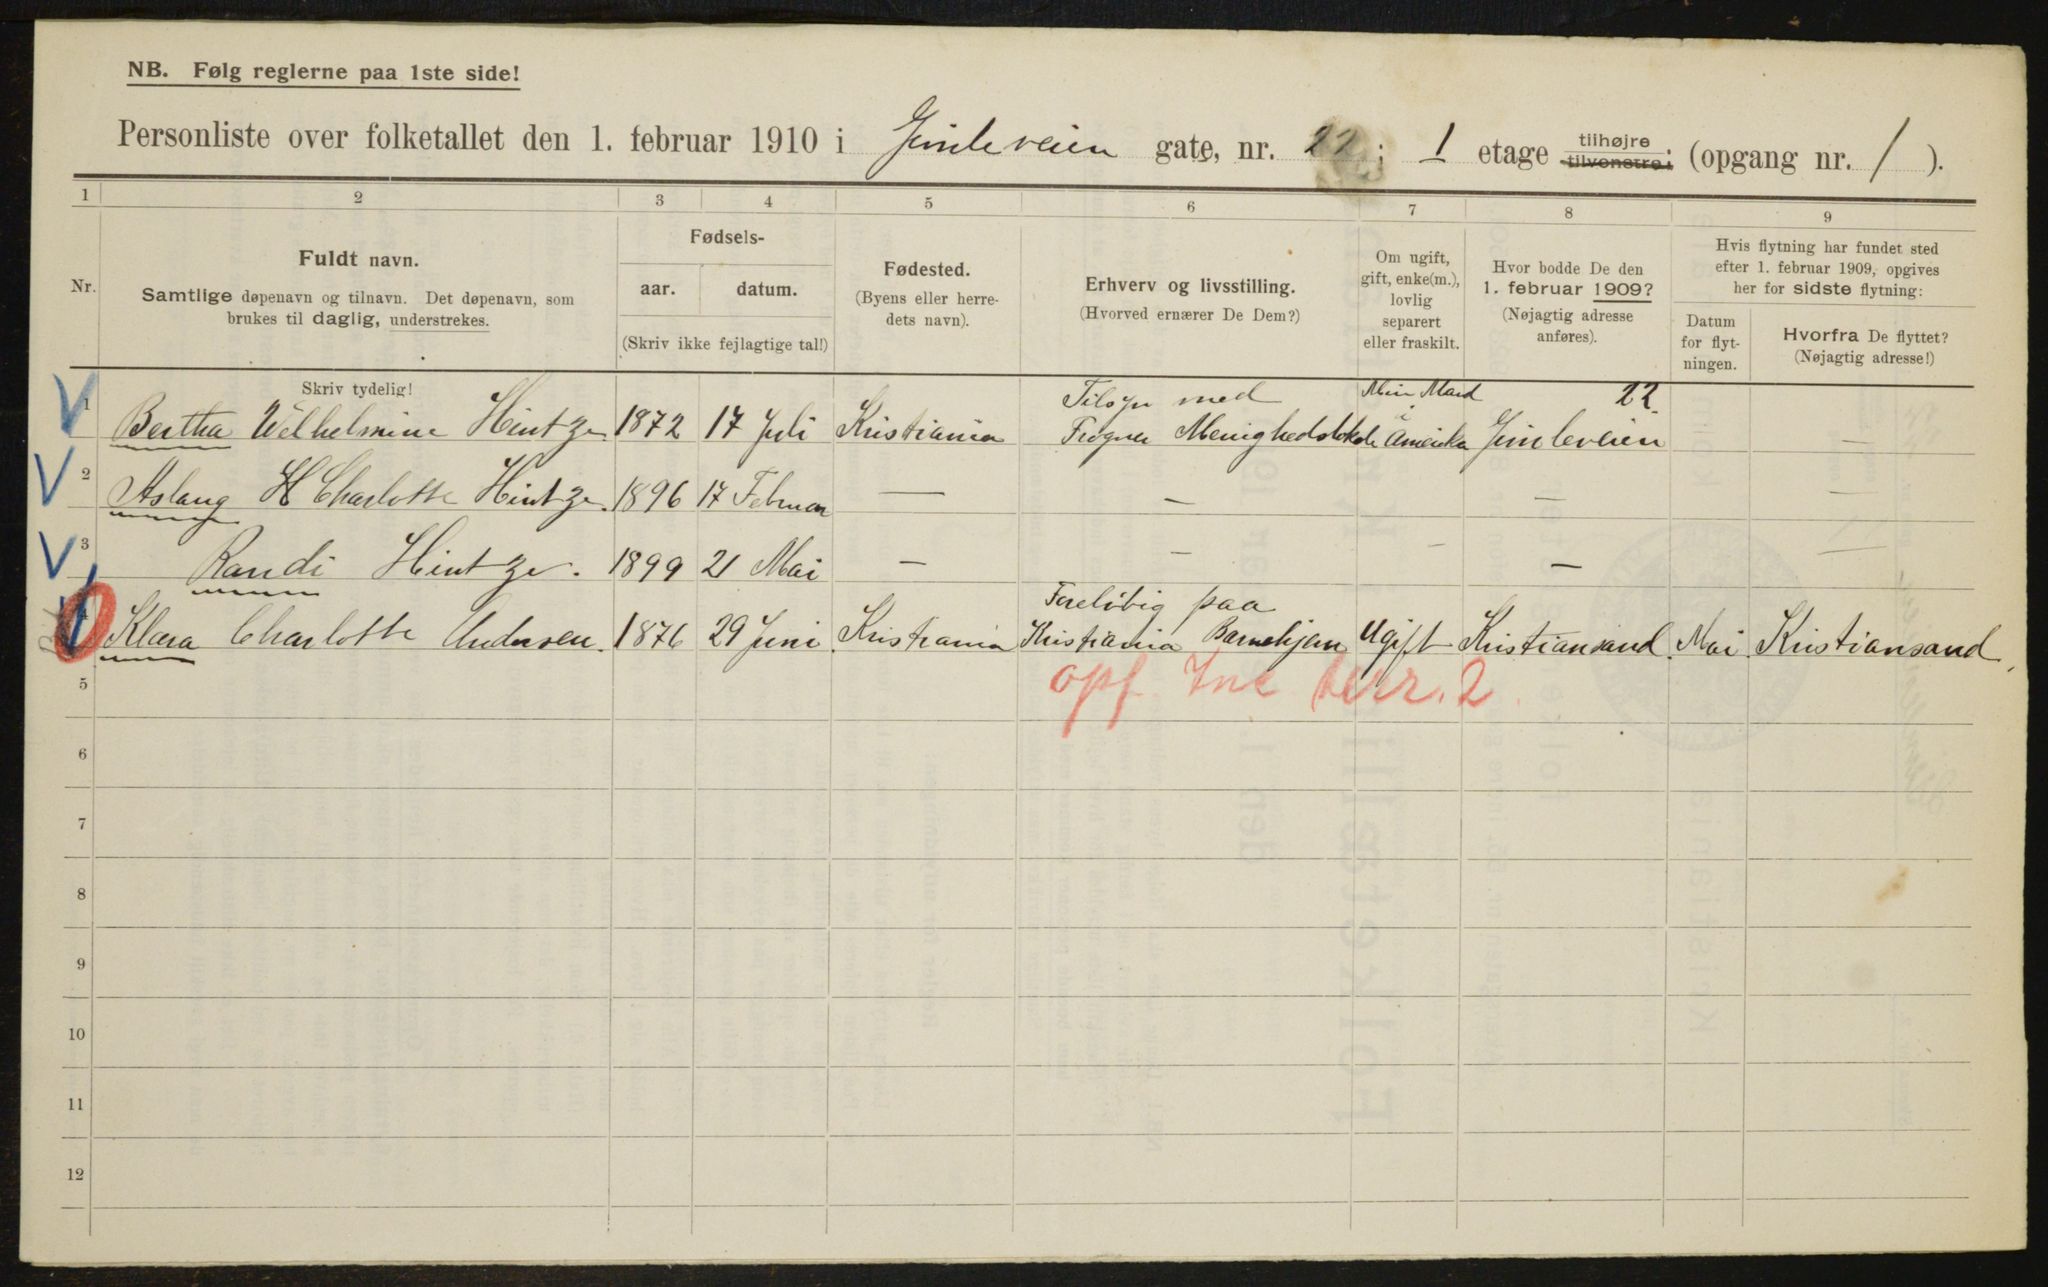 NB. Følg reglerne paa 1ste side!
Personliste over folketallet den 1. februar 1910 i Gimleveien gate, nr. 22; 1 etage tilhøjre tilvenstre; (opgang nr. 1).
1 2 3 4 5 6 7 8 9
Nr.
Fuldt navn.
Samtlige døpenavn og tilnavn. Det døpenavn, som
brukes til daglig, understrekes.
Skriv tydelig!
Fødsels-
aar. datum.
(Skriv ikke fejlagtige tal!)
Fødested.
(Byens eller herre-
dets navn).
Erhverv og livsstilling.
(Hvorved ernærer De Dem?)
Om ugift,
gift, enke(m.),
lovlig
separert
eller fraskilt.
Hvor bodde De den
1. februar 1909?
(Nøjagtig adresse
anføres).
Hvis flytning har fundet sted
efter 1. februar 1909, opgives
her for sidste flytning:
Datum
for flyt-
ningen.
Hvorfra De flyttet?
(Nøjagtig adresse!)
Tilsyn med Min Mand 22
1 Bertha Wilhelmine Hintze 1872 17 Juli Kristiania Frogner Menighedslokale i Amerika Gimleveien —
2 Aslaug H Charlotte Hintze. 1896 17 Februar — — — —
3 Randi Hintze. 1899 21 Mai — — — — —
Foreløbig paa
4 Klara Charlotte Andersen. 1876 29 Juni Kristiania Kristiania Barnehjem Ugift Kristiansand Mai Kristiansand
opf. Ine terr. 2
5
6
7
8
9
10
11
12